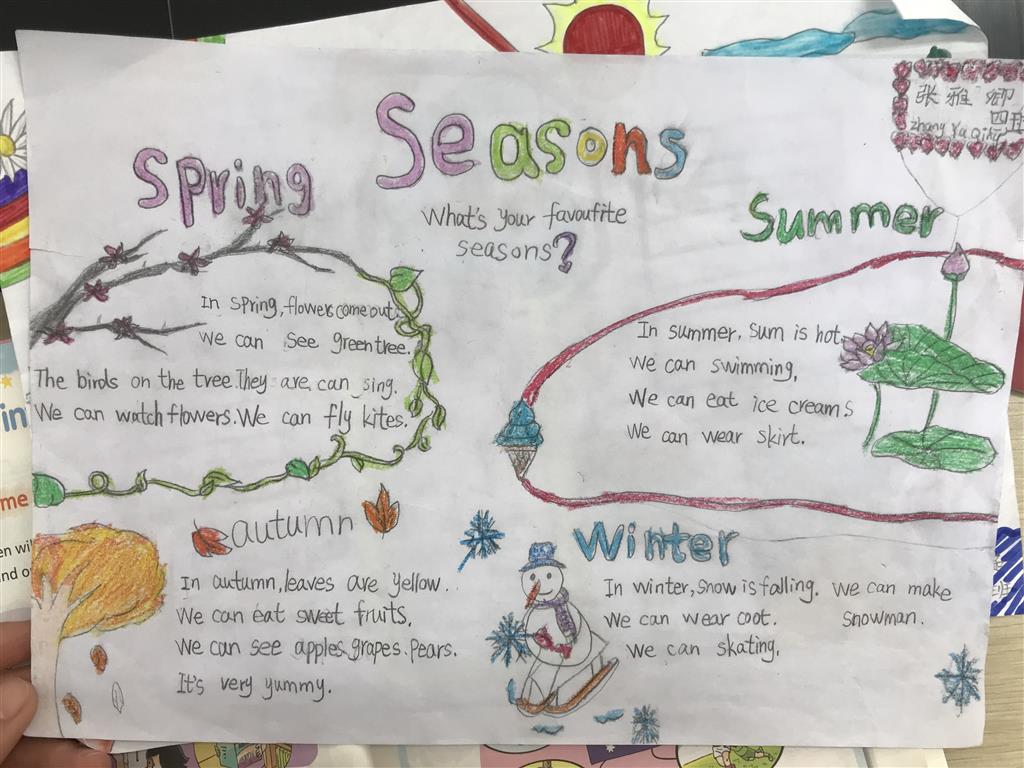 Seasons
张雅卿
四班
zhang Ya Qing
Spring
What's your favoufite
seasons?
Summer
In spring, flowers come out.
We can see green tree.
The birds on the tree. They are can sing.
We can watch flowers. We can fly kites.
In summer, sum is hot.
We can swimming,
We can eat ice creams
We can wear skirt.
autumn
In autumn, leaves are yellow.
We can eat sweet fruits.
We can see apples. grapes. Pears.
It's very yummy.
Winter
In winter, snow is falling. We can make
We can wear coot. snowman.
We can skating.
me